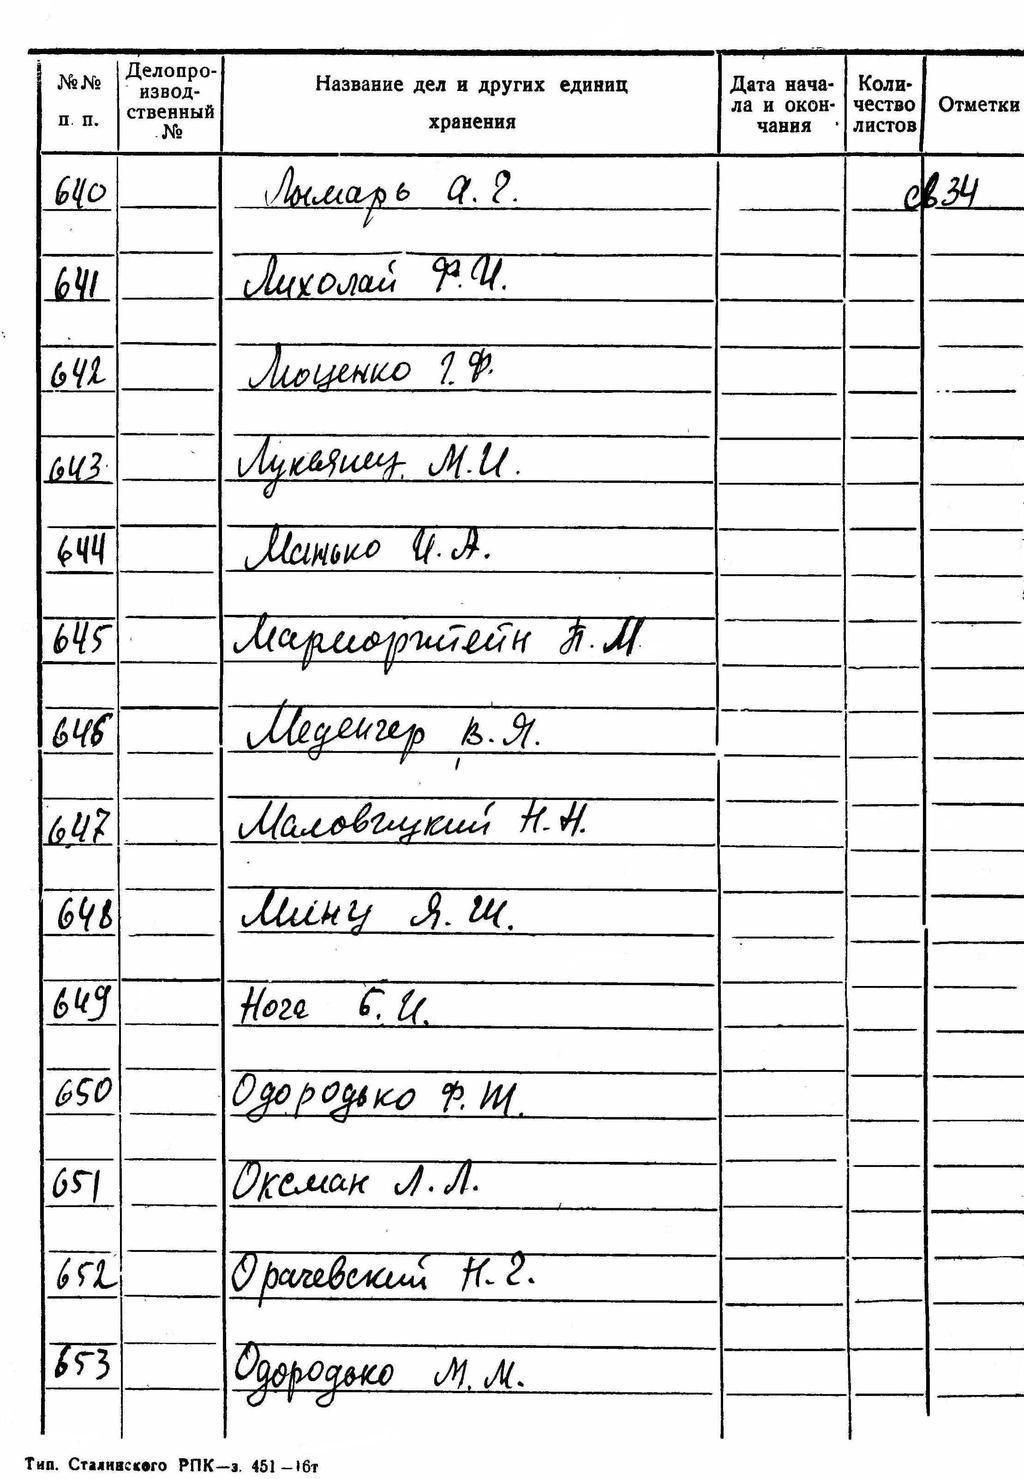 №№ п. п. Делопроизводственный № Название дел и других единиц хранения Дата начала и окончания Количество листов Отметки
640 Лымарь А. Г. св 34
641 Лихолай Ф. И.
642 Лиоценко Г. Ф.
643 Лукьянец М. И.
644 Манько И. А.
645 П. М.
646 Меденгер В. Я.
647 Маловицкий Н. Н.
648 Минц Я. Ш.
649 Нога Б. И.
650 Одородько Ф. Т.
651 Оксман Л. Л.
652 Орачевский Н. Г.
653 Одородько М. М.
Тип. Сталинского РПК—з. 451—16т